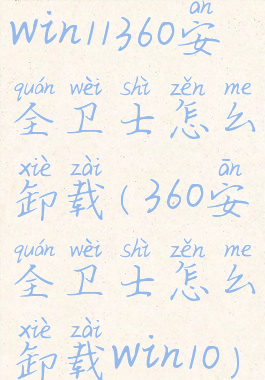 ān
win11360安
quán wèi shì zěn me
全卫士怎么
xiè zài ān
卸载(360安
quán wèi shì zěn me
全卫士怎么
xiè zài
卸载win10)